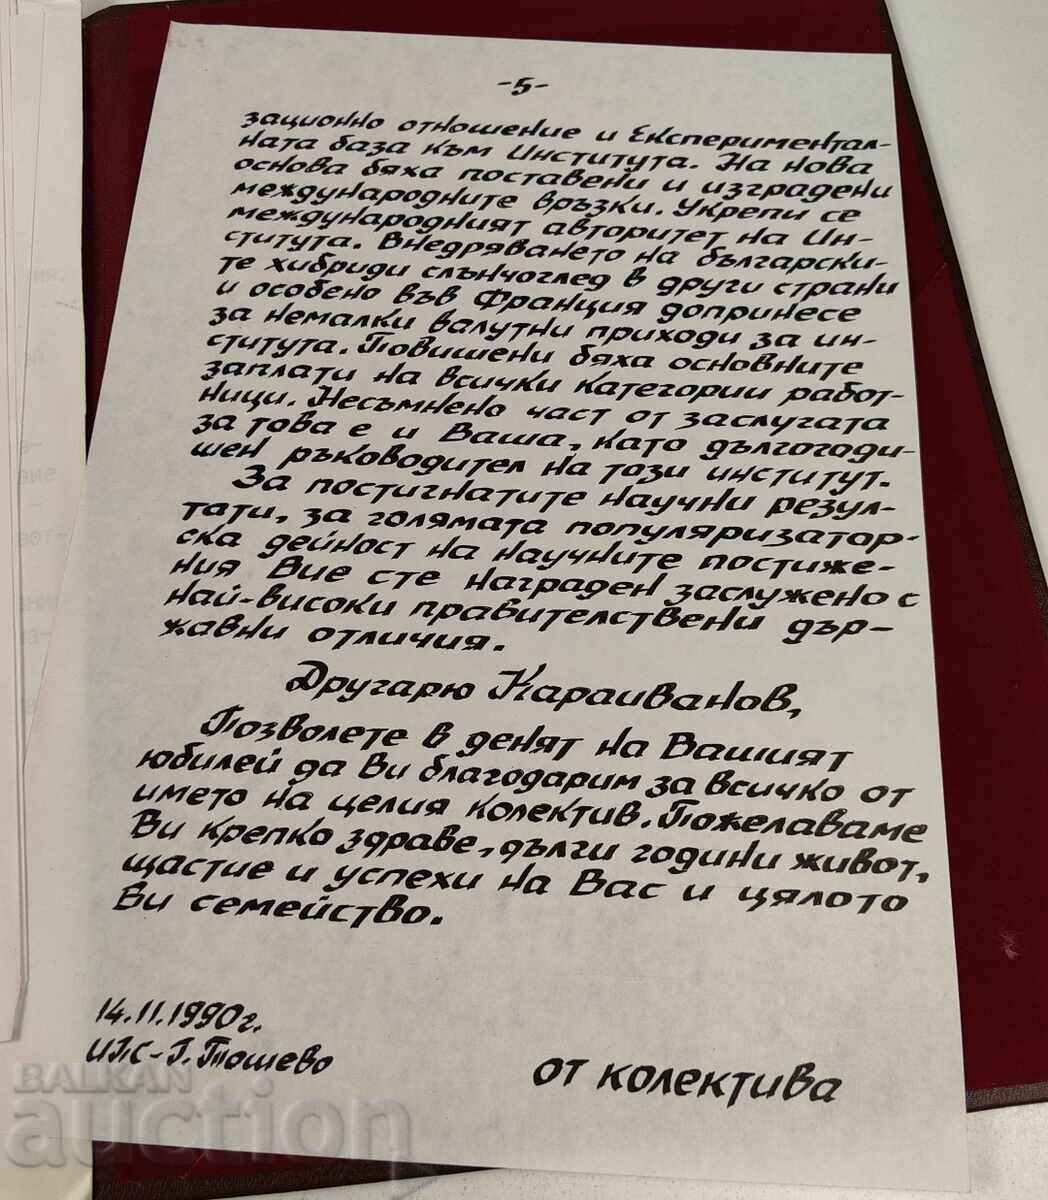 -5-
зационно отношение и Експериментал-
ната база към Института. На нова
основа бяха поставени и изградени
международните връзки. Укрепи се
международният авторитет на Ин-
ститута. Внедряването на български-
те хибриди слънчоглед в други страни
и особено във Франция допринесе
за немалки валутни приходи за ин-
ститута. Повишени бяха основните
заплати на всички категории работ-
ници. Несъмнено част от заслугата
за това е и Ваша, като дългогоди-
шен ръководител на този институт.
За постигнатите научни резул-
тати, за голямата популяризатор-
ска дейност на научните постиже-
ния Вие сте награден заслужено с
най-високи правителствени дър-
жавни отличия.
Другарю Караиванов,
Позволете в денят на Вашият
юбилей да Ви благодарим за всичко от
името на целия колектив. Пожелаваме
Ви крепко здраве, дълги години живот,
щастие и успехи на Вас и цялото
Ви семейство.
14.11.1990г.
ИПС-Г. Тошево
от колектива
BALKAN
auction